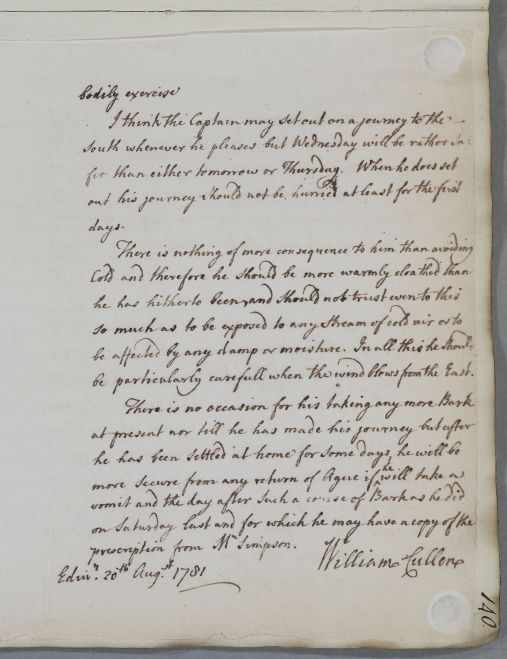 bodily exercise
I think the Captain may set out on a journey to the
South whenever he pleases but Wednesday will be rather sa-
fer than either tomorrow or Thursday. When he does set
out his journey should not be hurried at least for the first
days.
There is nothing of more consequence to him than avoiding
Cold and therefore he should be more warmly cloathed than
he has hitherto been, and should not trust even to this
so much as to be exposed to any stream of cold air or to
be affected by any damp or moisture. In all this he should
be particularly carefull when the wind blows from the East.
There is no occasion for his taking any more Bark
at present nor till he has made his journey but after
he has been settled at home for some days, he will be
more secure from any return of Ague if he will take a
vomit and the day after such a course of Bark as he did
on Saturday last and for which he may have a copy of the
prescription from Mr Simpson.
William Cullen
Edinr. 20th Augst 1781
140.